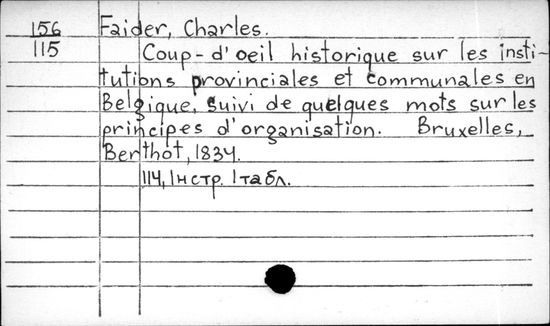 156 Faider, Charles.
115 Coup-d'oeil historique sur les insti-
tutions provinciales et communales en
Belgique, suivi de quelques mots sur les
principes d'organisation. Bruxelles,
Berthot, 1834.
114, 1 нстр. 1 табл.